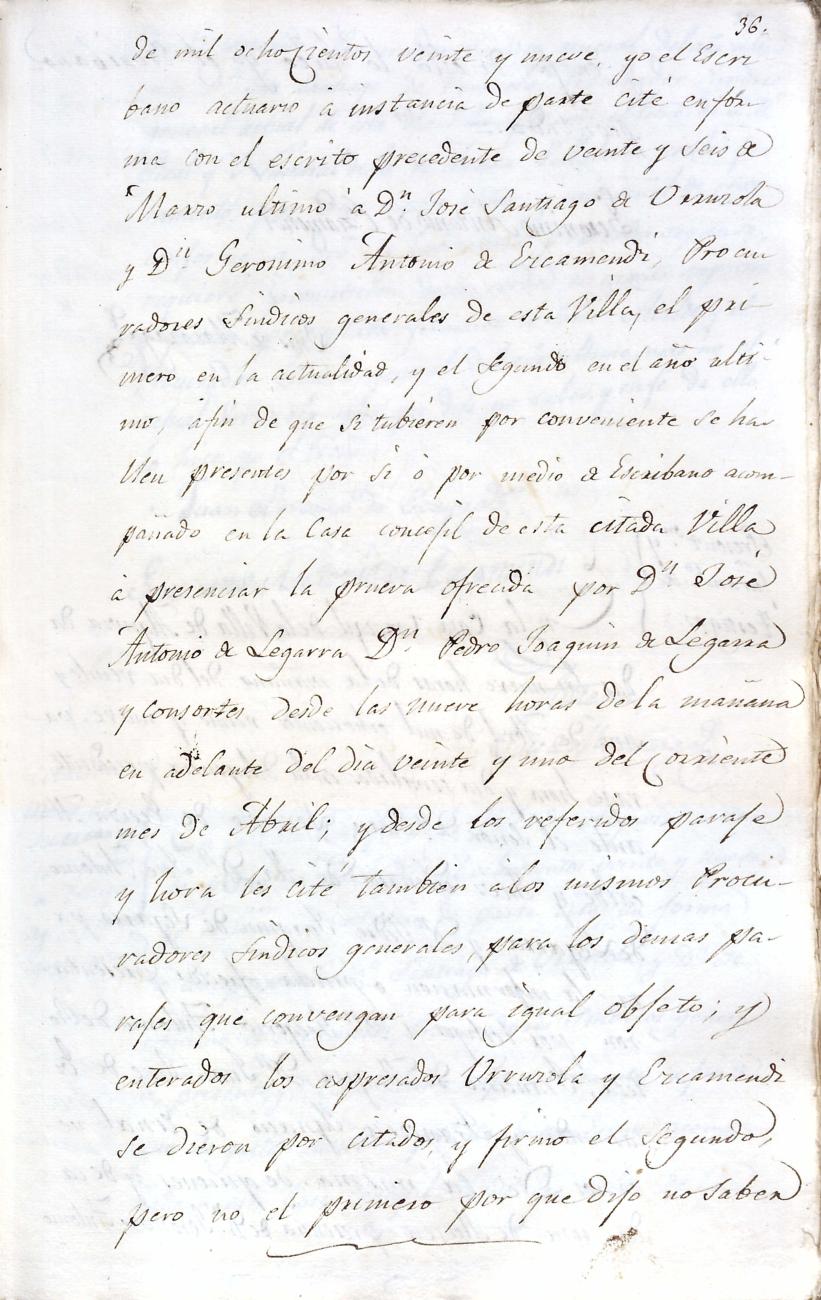 36.
de mil ochocientos veinte y nueve, yo el Escri
bano actuario á instancia de parte cité en for-
ma con el escrito precedente de veinte y seis de
Marzo ultimo á Dn José Santiago de Urruzola
y Dn Geronimo Antonio de Ercamendi, Procu
radores Sindicos generales de esta Villa, el pri-
mero en la actualidad, y el segundo en el año ulti-
mo, áfin de que si tubieren por conveniente se ha-
llen presentes por si ó por medio de Escribano acom-
pañado en la Casa concejil de esta citada Villa
á presenciar la prueva ofrecida por Dn José
Antonio de Legarra Dn Pedro Joaquin de Legarra
y consortes desde las nueve horas de la mañana
en adelante del dia veinte y uno del corriente
mes de Abril; y desde los referidos paraje
y hora les cité tambien álos mismos Procu-
radores Sindicos generales, para los demas pa-
rajes que convengan para igual objeto; y
enterados los espresados Urruzola y Ercamendi
se dieron por citados, y firmó el segundo,
pero no el primero por que dijo no saber